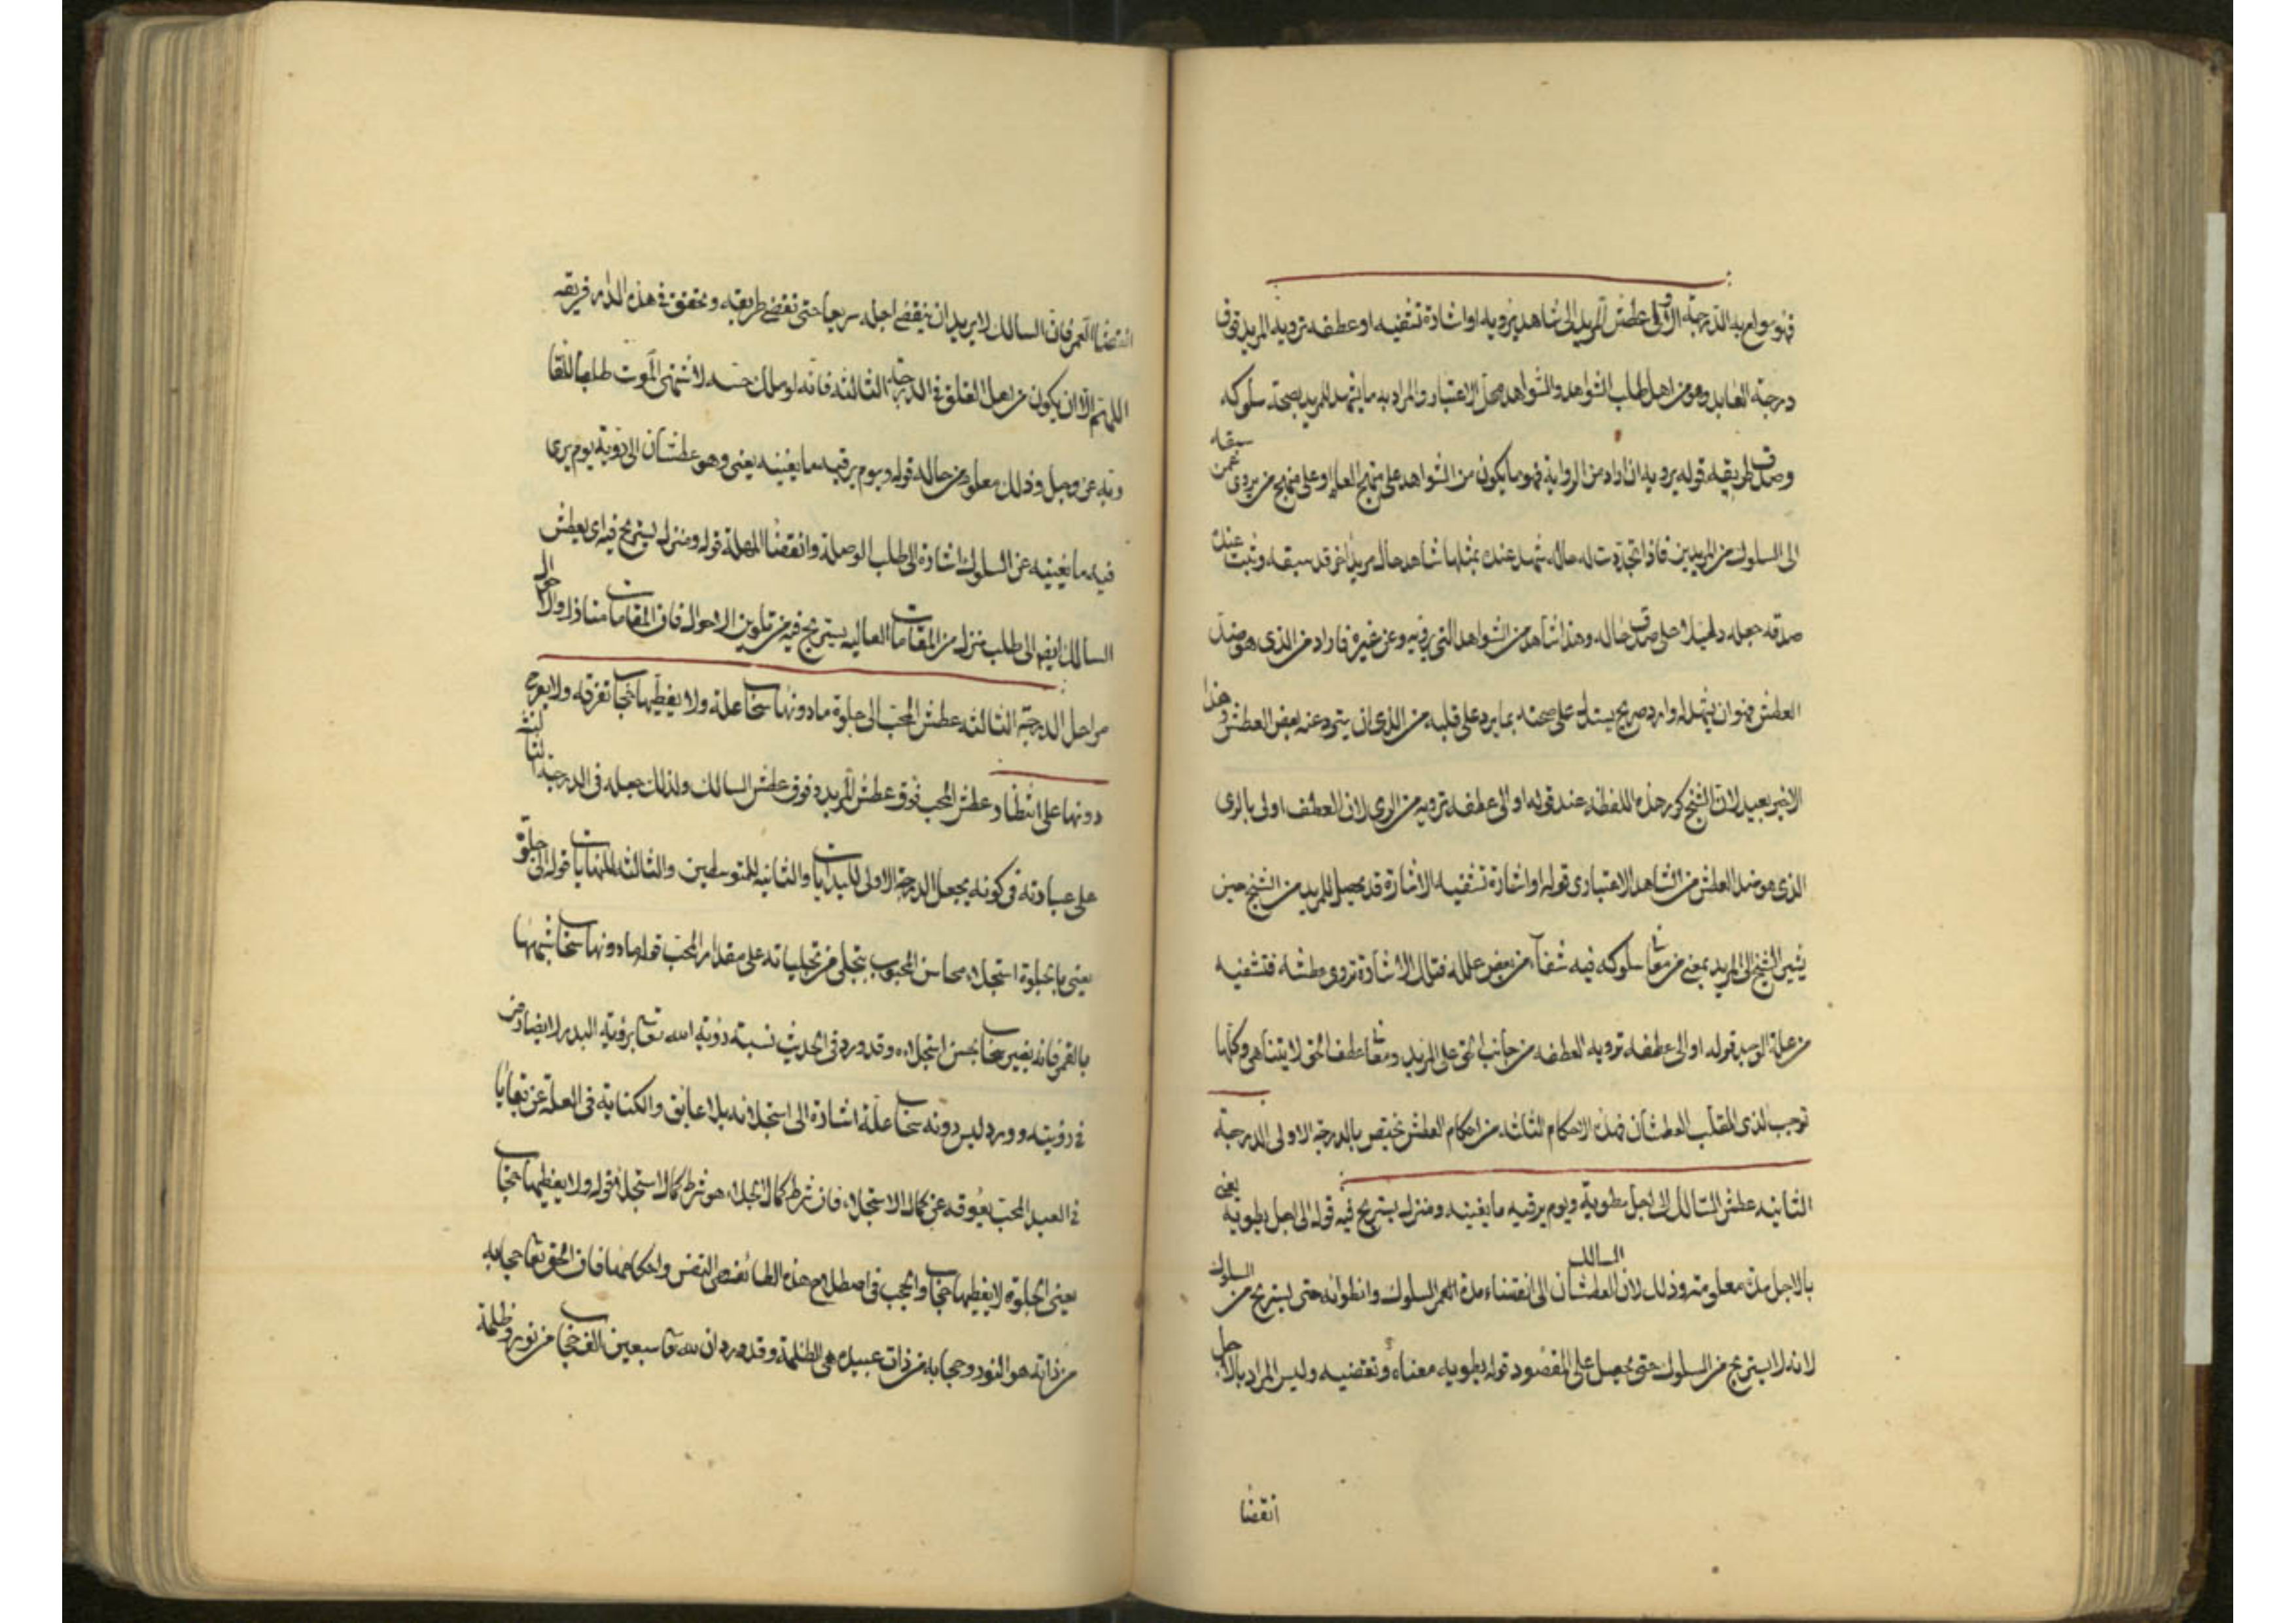 فهو مولع به الدرجة الاولى عطش المريد الى شاهد يرويه او اشارة تشفيه او عطفه ترويه المريد فوق
درجة العابد وهو من اهل طلب الشواهد والشواهد محل الاعتبار والمراد به ما يشهد للمريد بصحة سلوكه
وصدق طريقه قوله يرويه ان اراد من الرواية فهو ما يكون من الشواهد على منهج العلم او على منهج من يروى عمن سبقه
الى السلوك من المريدين فاذا تجددت له حال شهد عنده بمثلها شاهد حال مريد اخر قد سبقه وثبت عنده
صدقه جعله دليلا على صدق حاله وهذا شاهد من الشواهد التى فيه وعن غيره فاراد من الذى هو ضد
العطش فهو ان يشهد له وارد صريح يستدل على صحته بما يرد على قلبه من الذى ان يتبرد عنه بعض العطش وهذا
الاخير بعيد لان الشيخ كرر هذه اللفظه عند قوله او الى عطفه ترويه من الرى لان العطف اولى بالرى
الذى هو ضد العطش من الشاهد الاعتبارى قوله او اشارة تشفيه الاشارة قد يحصل للمريد من الشيخ حين
يشير الشيخ الى المريد بمعنى من معانى سلوكه فيه شفآء من بعض علله فتلك الاشارة تروى عطشه فتشفيه
من علة الوجد قوله او الى عطفه ترويه العطفه من جانب الحق على المريد ومعانى عطف الحق لا يتناهى وكلها
توجب لذى القلب العطشان فهذه الاحكام الثلثه من احكام العطش تختص بالدرجة الاولى الدرجة
الثانيه عطش السالك الى اجل يطويه ويوم يرقيه ما يغنيه ومنزل يستريح فيه قوله الى اجل يطويه يعنى
بالاجل مدة معلومته وذلك لان العطشان السالك الى انقضاء مدة العمر السلوك وانطوائه حتى يستريح من السلوك
لانه لا يستريح من السلوك حتى يحصل على المقصود قوله يطويه معناه وتقضيه وليس المراد بالاجل
انقضا
انقضا العمر فان السالك لا يريد ان ينقضى اجله سريعا حتى تقضى طريقه وتحقق فى هذه الدار فريقه
اللهم الا ان يكون من اهل القلق فى الدرجة الثالثه فانه لو ملك حسه لاشتهى الموت طلبا للقا
ربه عز وجل وذلك معلوم من حاله قوله ويوم يرقيه ما يغنيه يعنى وهو عطشان الى رؤية يوم يرى
فيه ما يغنيه عن السلوك اشارة الى طلب الوصلة وانقضا المهلة قوله ومنزل ليستريح فيه اى يعطش
السالك ايضا الى طلب منزل من المقامات العاليه يستريح فيه من تلوين الاحوال فان المقامات منازل والاحوال
مراحل الدرجة الثالثه عطش المحب الى جلوة ما دونها سحاب علة ولا يغطيها حجاب تفرقه ولا يعرج
دونها على انتظار وعطش المحب فوق عطش المريد وفوق عطش السالك ولذلك جعله فى الدرجة الثالثه لانه
على عبادته فى كونه يجعل الدرجة الاولى للبدايات والثانيه للمتوسطين والثالثه للنهايات قوله الى جلوة
يعنى بالجلوة استجلاء محاسن المحبوب يتجلى من تجلياته على مقدار المحب قوله ما دونها سحاب شبهها
بالقمر فانه بغير سحاب يحسن استجلاه وقد ورد فى الحديث نسبة رؤية الله تعالى برؤية البدر لا يضارون
فى رؤيته وورد ليس دونه سحاب علة اشارة الى استجلائه بلا عايق والكناية فى العلة عن بقايا
فى العبد المحب يعوقه عن كمال الاستجلاء فان شرط كمال الجلاء هو شرط كمال الاستجلاء قوله ولا يغطيها حجاب
يعنى الجلوة لا يغطيها حجاب والحجب فى اصطلاح هذه الطائفه هى النفس واحكامها فان الحق تعالى حجابه
من ذاته هو النور وحجابه من ذات عبيده هى الظلمة وقد ورد ان لله تعالى سبعين الف حجاب من نور وظلمة